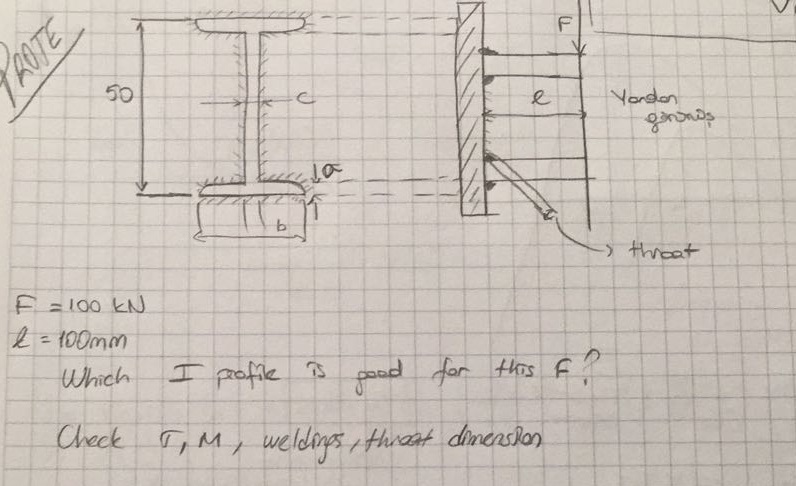 PROTE
50
c
a
b
F
l
Yandan
görünüş
throat
F = 100 kN
l = 100mm
Which I profile is good for this F?
Check T, M, weldings, throat dimension